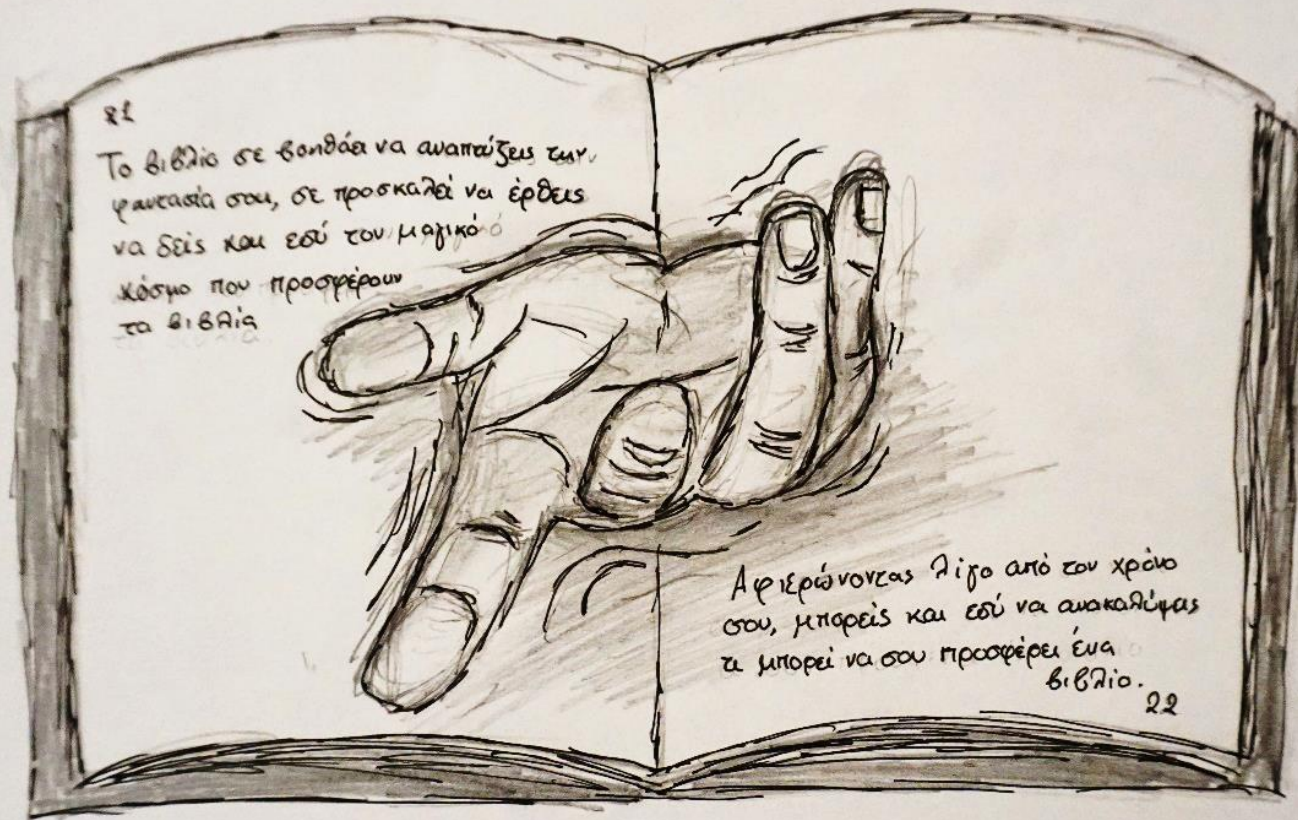 21
Το βιβλίο σε βοηθάει να αναπτύξεις την
φαντασία σου, σε προσκαλεί να έρθεις
να δεις και εσύ τον μαγικό
κόσμο που προσφέρουν
τα βιβλία
Αφιερώνοντας λίγο από τον χρόνο
σου, μπορείς και εσύ να ανακαλύψεις
τι μπορεί να σου προσφέρει ένα
βιβλίο.
22